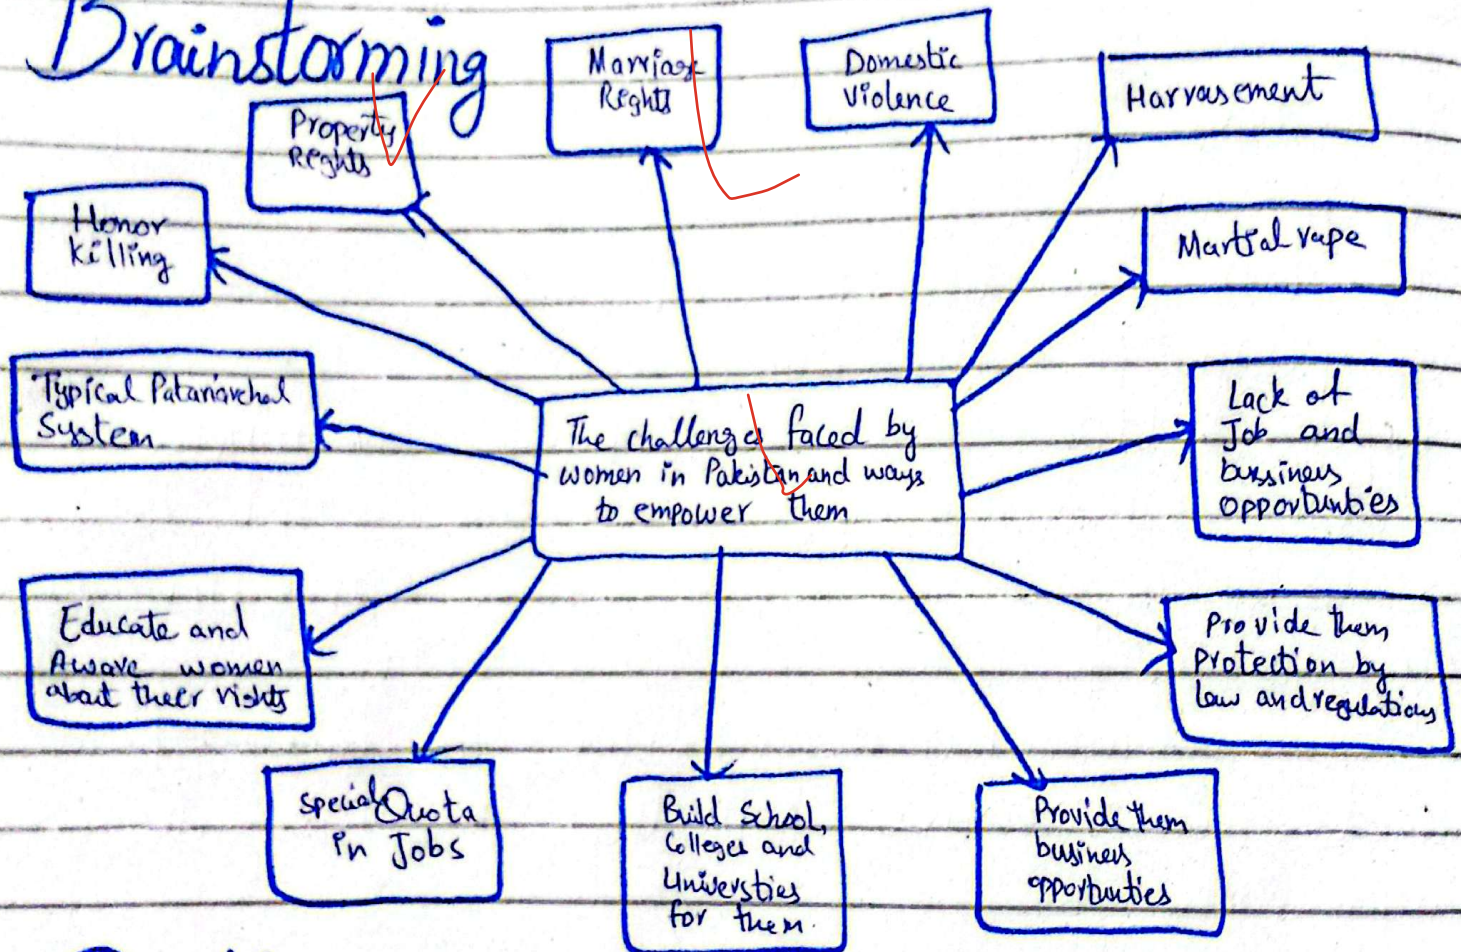 Brainstorming
Marriage
Rights
Domestic
violence
Harrasement
Property
Rights
Honor
killing
Martial rape
Typical Patariarchal
System
The challenges faced by
women in Pakistan and ways
to empower them
Lack of
Job and
bussiness
opportunties
Educate and
Aware women
about their rights
Provide them
protection by
law and regulations
special Quota
in Jobs
Build School,
Colleges and
Universties
for them.
Provide them
business
opportunties